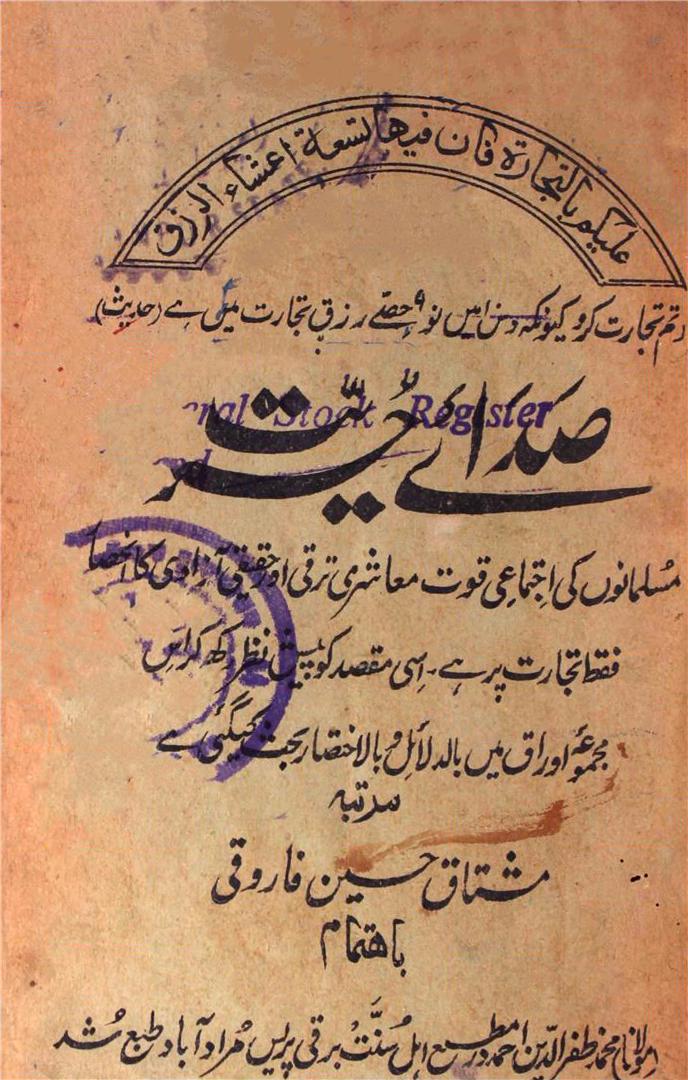 علیکم بالتجارۃ فان فیھا تسعۃ اعشاء الرزق
(تم تجارت کرو کیونکہ دس میں نو ۹ حصّے رزق تجارت میں ہے (حدیث)
صدائے حُرّیت
Stock Register
مُسلمانوں کی اِجتماعی قوت معاشری ترقی اور حقیقی آزادی کا انحصا
فقط تجارت پر ہے۔ اِسی مقصد کو پیشِ نظر رکھ کر اس
مجموعۂ اوراق میں بالدلائل و بالاختصار بحث کیگئی ہے
مرتبہ
مشتاق حسین فاروقی
باھتمام
مولانا محمد ظفرالدین احمد در مطبع اہل سُنَّتْ برقی پریس مُرادآباد طبع شُد